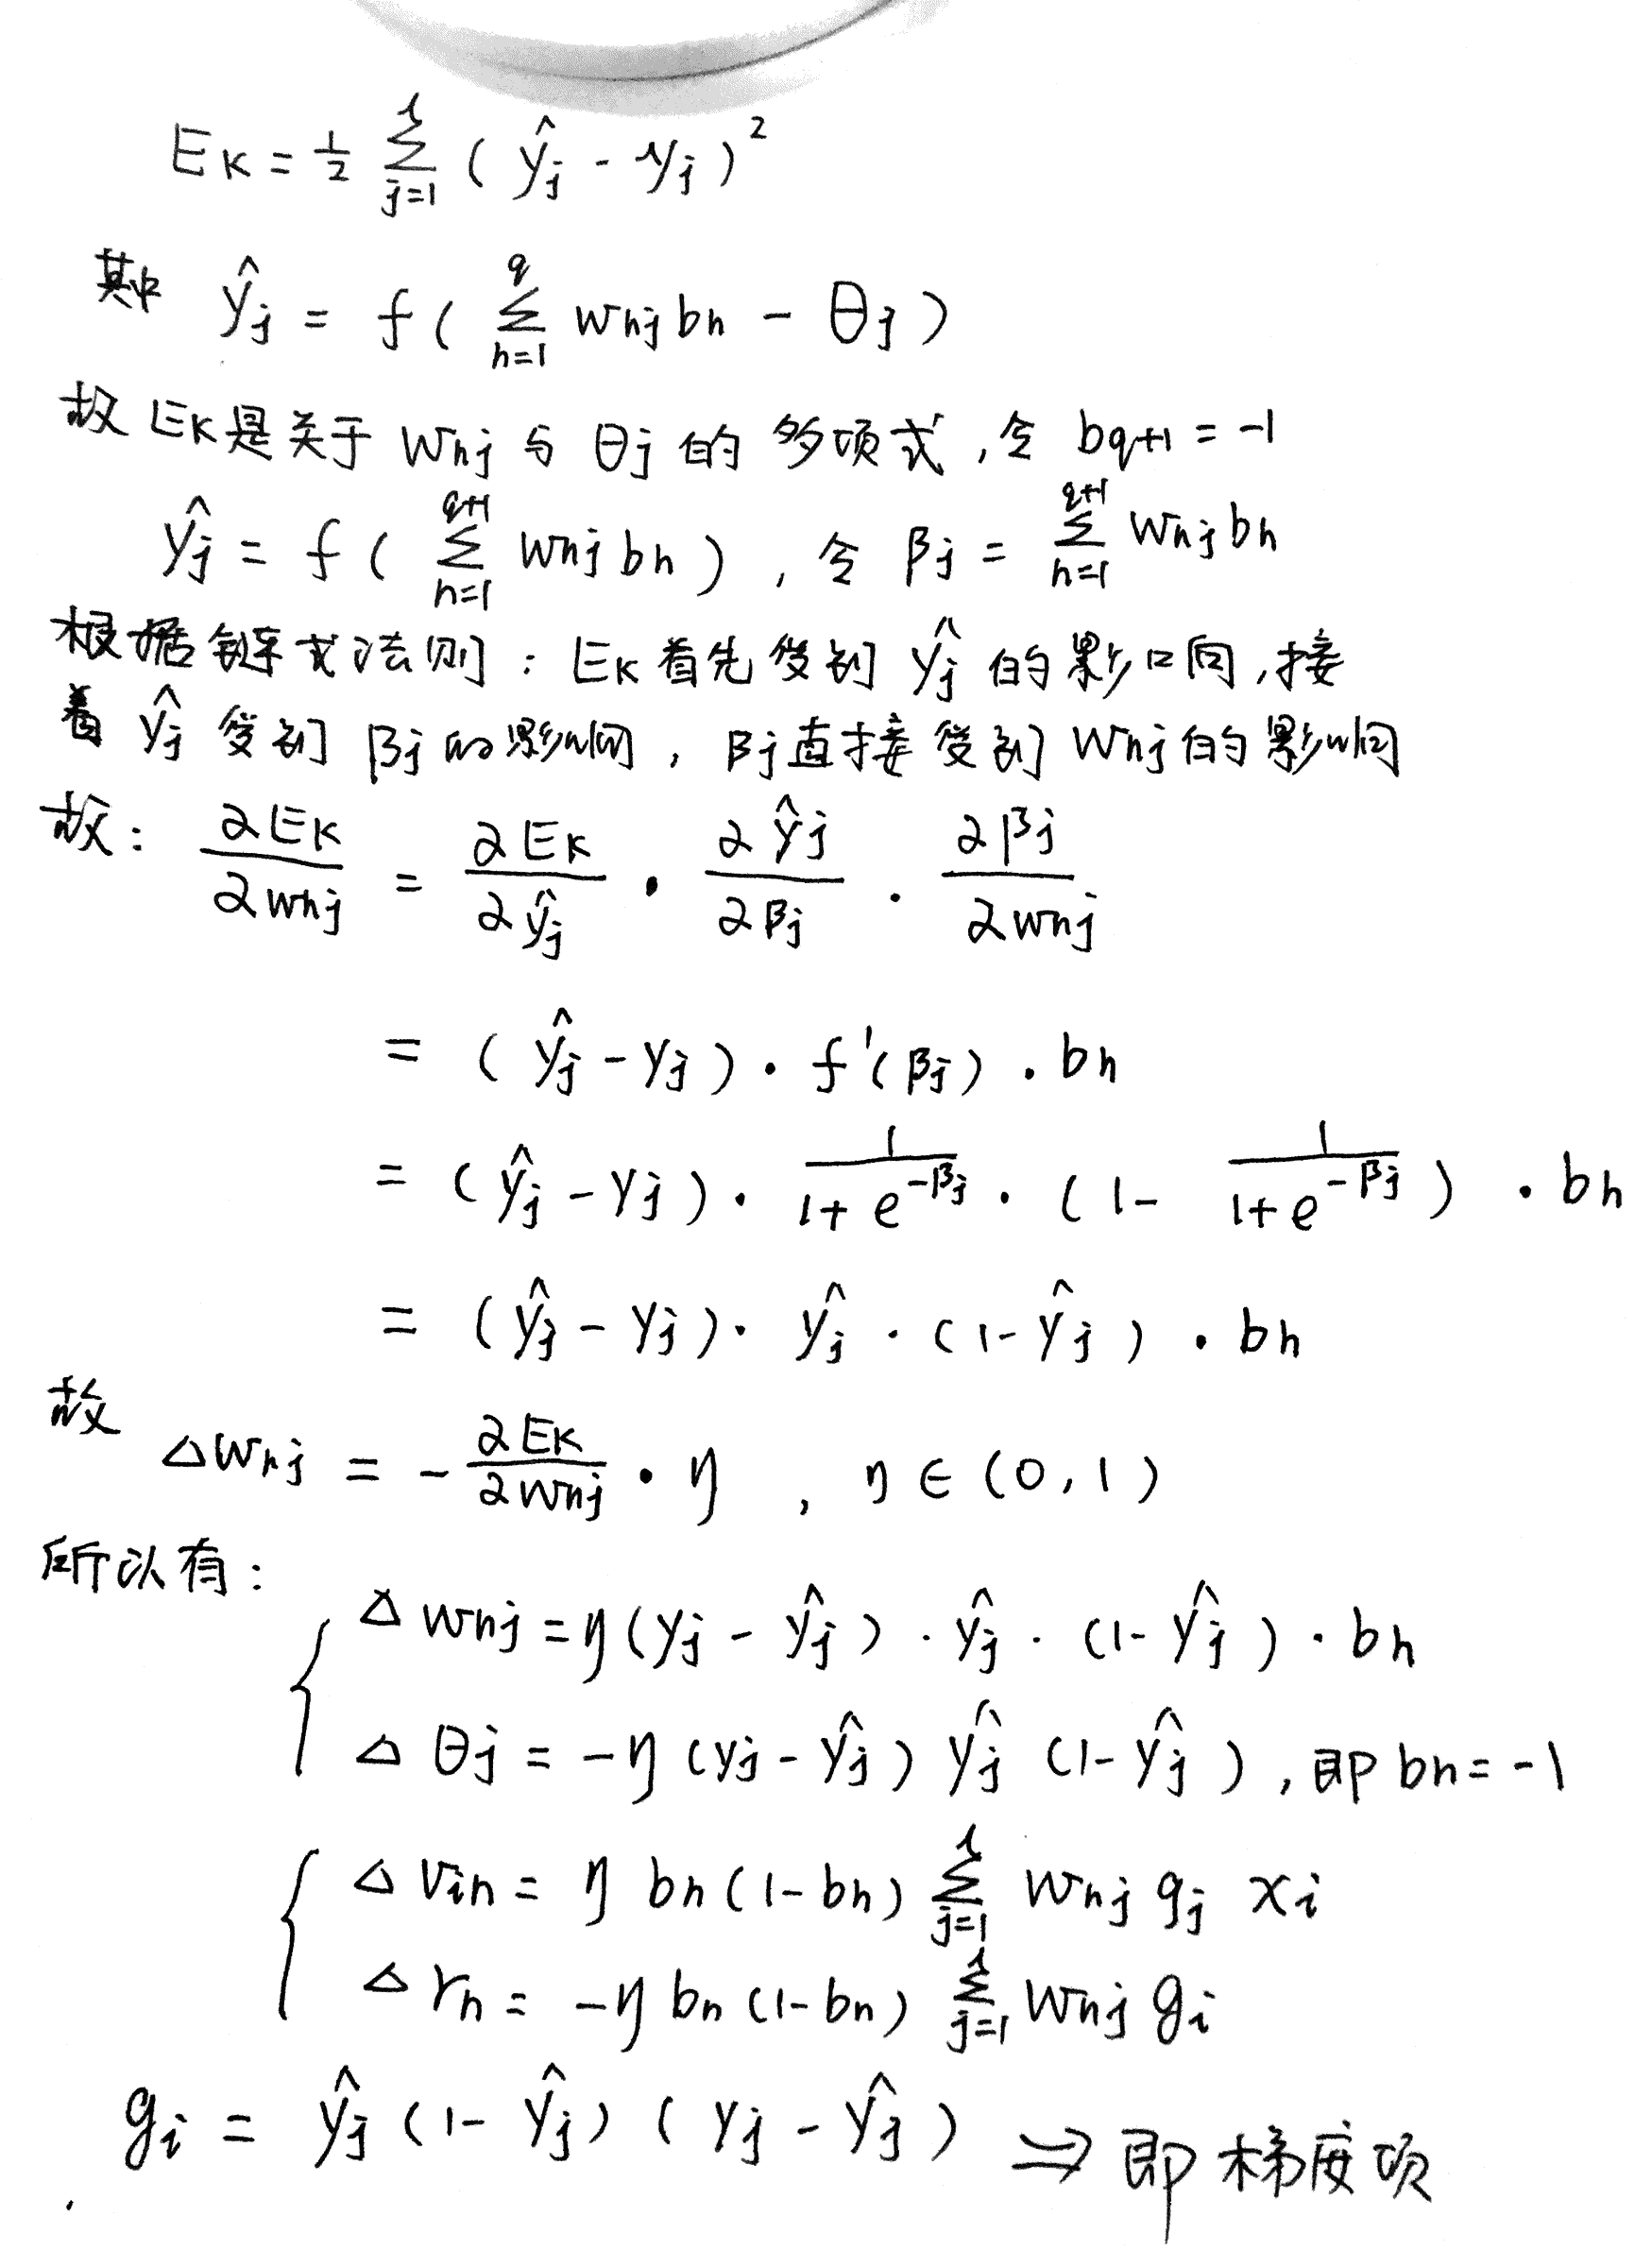 E_k = 1/2 Σ_{j=1}^{l} (ŷ_j - y_j)^2
其中 ŷ_j = f( Σ_{h=1}^{q} w_hj b_h - θ_j )
故 E_k是关于 w_hj 与 θ_j 的 多项式, 令 b_{q+1} = -1
ŷ_j = f ( Σ_{h=1}^{q+1} w_hj b_h ) , 令 β_j = Σ_{h=1}^{q+1} w_hj b_h
根据链式法则: E_k首先受到 ŷ_j 的影响,接
着 ŷ_j 受到 β_j 的影响, β_j直接受到 w_hj的影响
故: ∂E_k/∂w_hj = ∂E_k/∂ŷ_j · ∂ŷ_j/∂β_j · ∂β_j/∂w_hj
= (ŷ_j - y_j) · f'(β_j) · b_h
= (ŷ_j - y_j) · 1/(1+e^{-β_j}) · (1 - 1/(1+e^{-β_j})) · b_h
= (ŷ_j - y_j) · ŷ_j · (1-ŷ_j) · b_h
故 △w_hj = - ∂E_k/∂w_hj · η , η ∈ (0, 1)
所以有:
△w_hj = η(y_j - ŷ_j) · ŷ_j · (1-ŷ_j) · b_h
△θ_j = -η (y_j - ŷ_j) ŷ_j (1-ŷ_j) , 即 b_h = -1
△v_ih = η b_h(1-b_h) Σ_{j=1}^{l} w_hj g_j x_i
△r_h = -η b_h (1-b_h) Σ_{j=1}^{l} w_hj g_i
g_i = ŷ_j (1-ŷ_j) (y_j - ŷ_j) ⇒ 即 梯度项